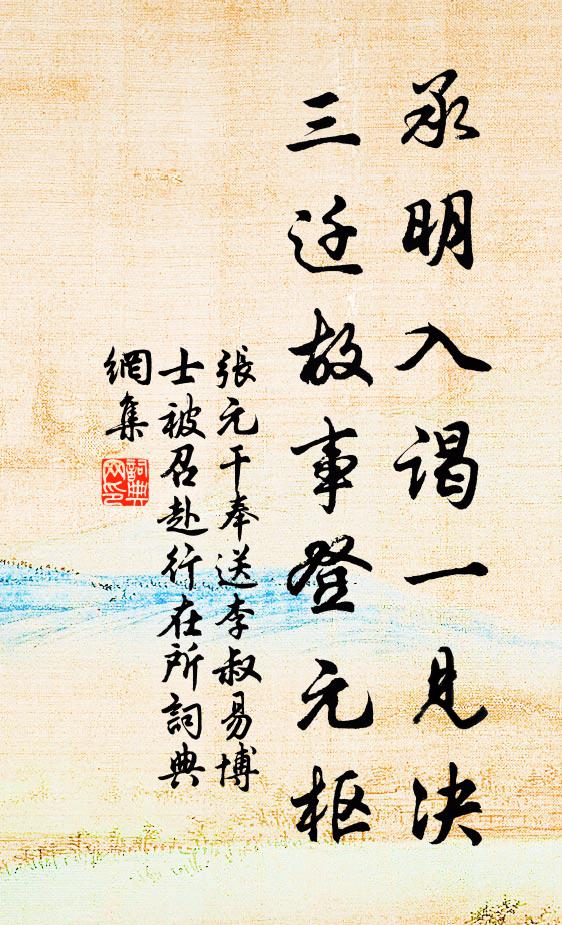 承明入谒一见决
三迁故事登元枢
張元干奉送李叔易博
士被召赴行在所詞典
網集
詞典
网印